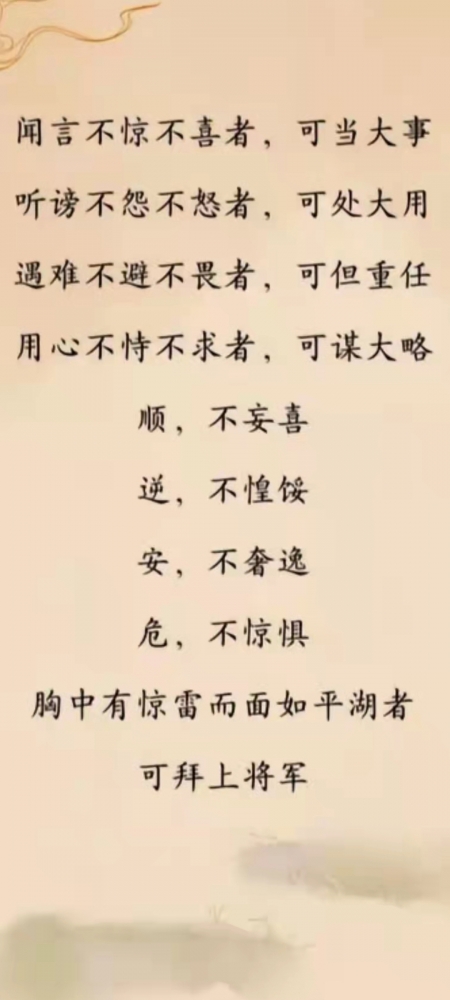 闻言不惊不喜者，可当大事
听谤不怨不怒者，可处大用
遇难不避不畏者，可但重任
用心不恃不求者，可谋大略
顺，不妄喜
逆，不惶馁
安，不奢逸
危，不惊惧
胸中有惊雷而面如平湖者
可拜上将军